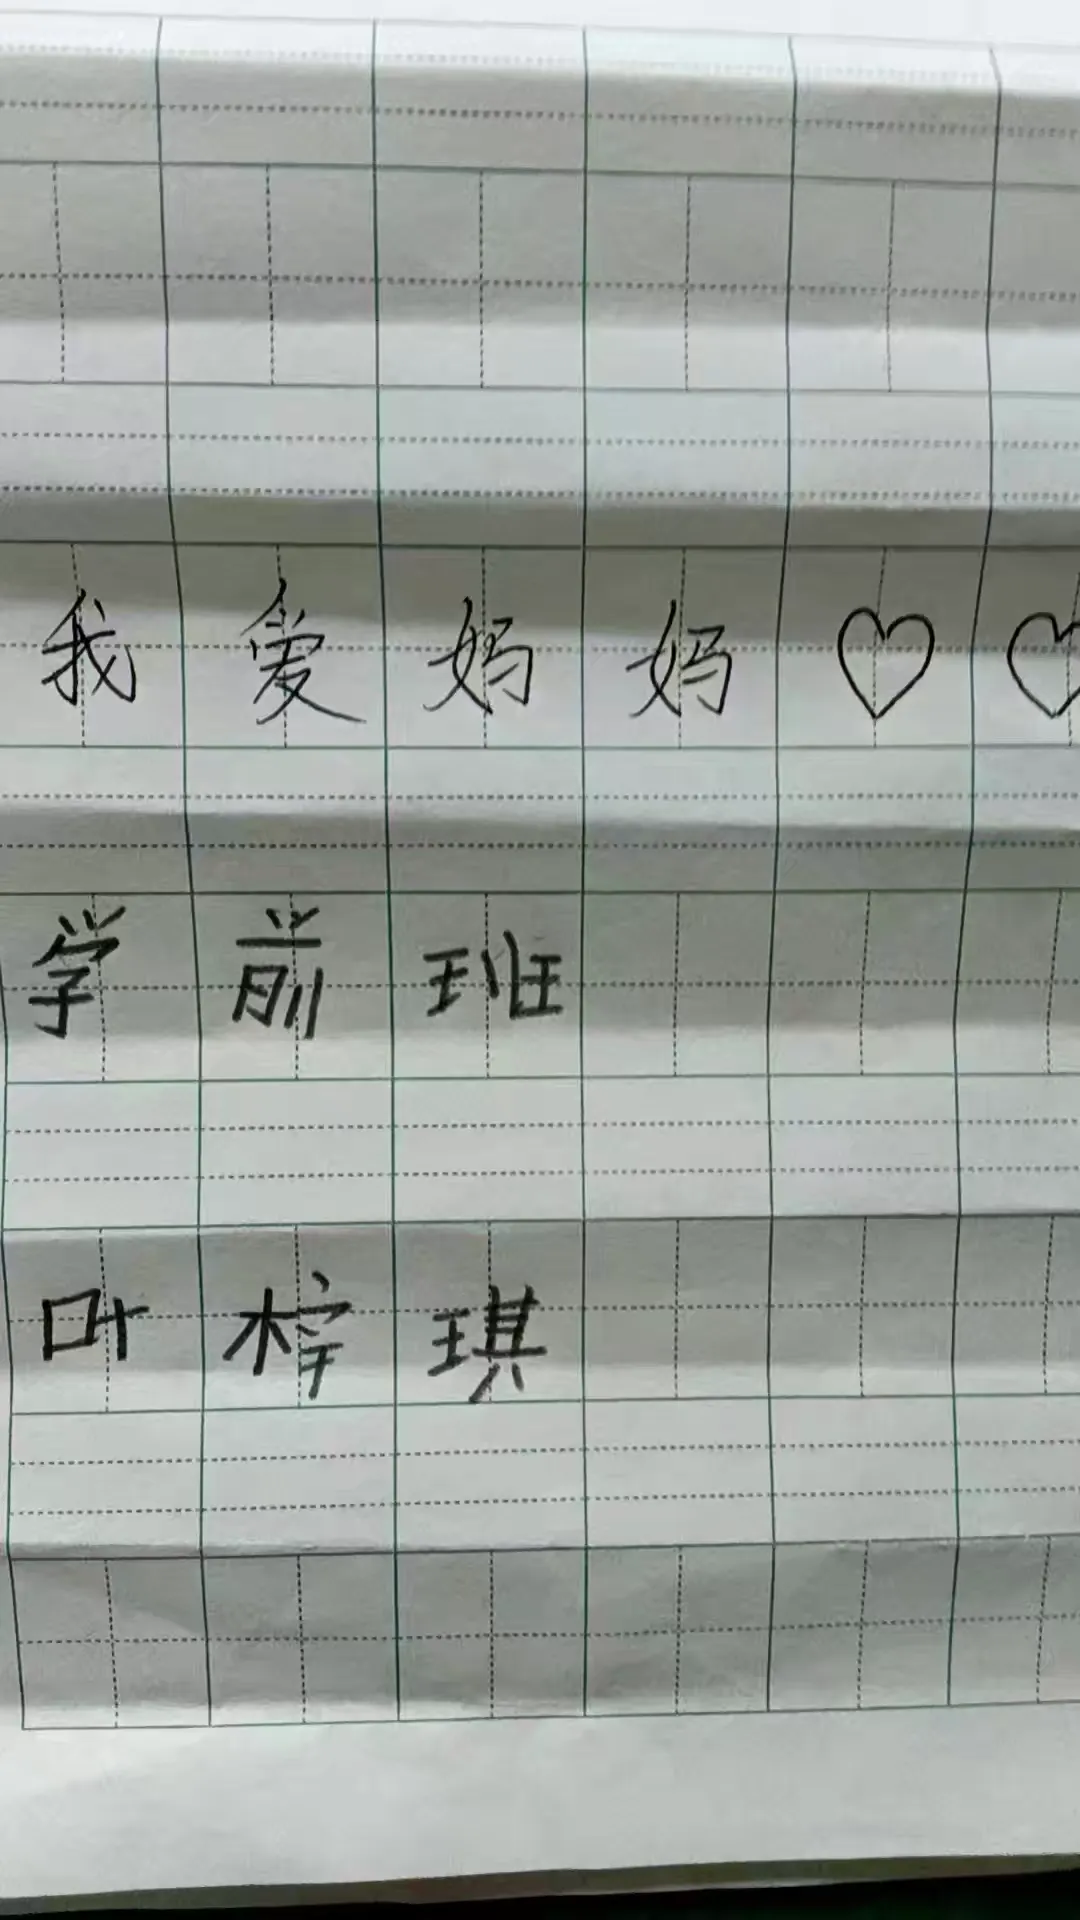 我爱妈妈♡♡
学前班
叶梓琪